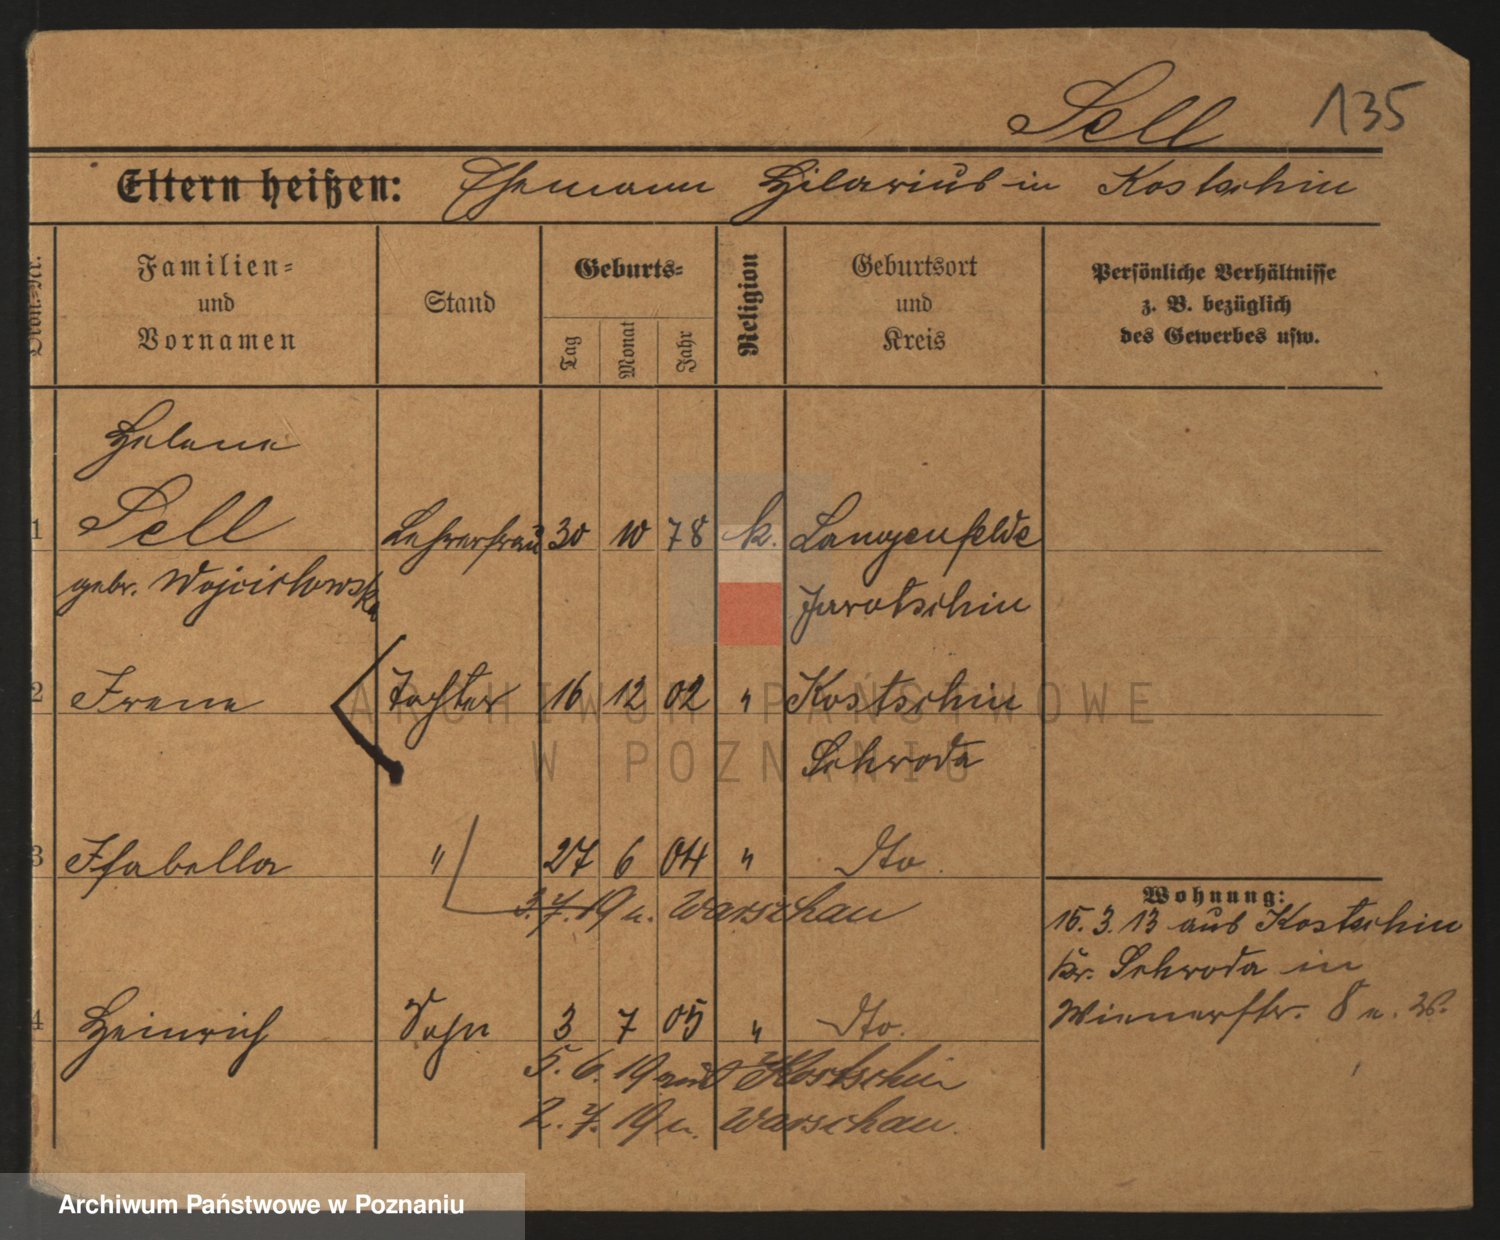 Sell 135
Eltern heißen: Ehemann Hilarius in Kostschin
Ordn.-Nr.
Familien-
und
Vornamen
Stand
Geburts-
Tag
Monat
Jahr
Religion
Geburtsort
und
Kreis
Persönliche Verhältnisse
z. B. bezüglich
des Gewerbes usw.
Helene
1 Sell Lehrerfrau 30 10 78 k. Langenfelde
gebr. Wojciechowska Jarotschin
2 Irene Tochter 16 12 02 " Kostschin
Schroda
3 Isabella " 27 6 04 " dto.
3.7.19 n. Warschau
Wohnung:
15.3.13 aus Kostschin
Kr. Schroda in
Wienerstr. 8
4 Heinrich Sohn 3 7 05 " dto.
5.6.19 aus Kostschin
2.7.19 n. Warschau.
ARCHIWUM PAŃSTWOWE
W POZNANIU
Archiwum Państwowe w Poznaniu